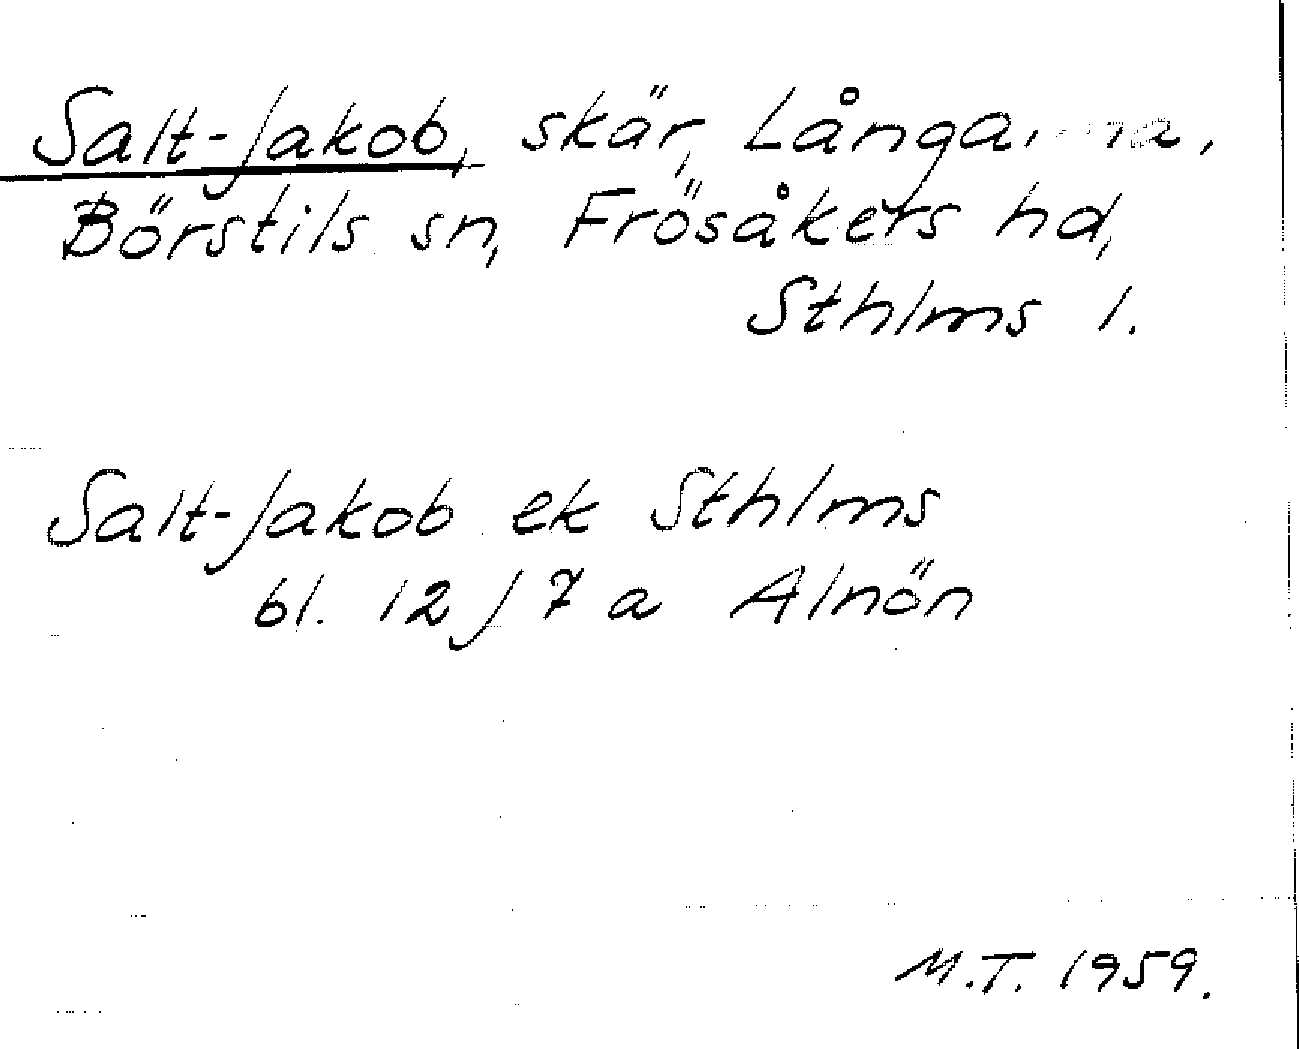 Salt-Jakob, skär,
Börstils sn, Frösåkers hd,
Sthlms l.
Salt-Jakob ek Sthlms
bl. 12 J 7 a Alnön
M.T. 1959.